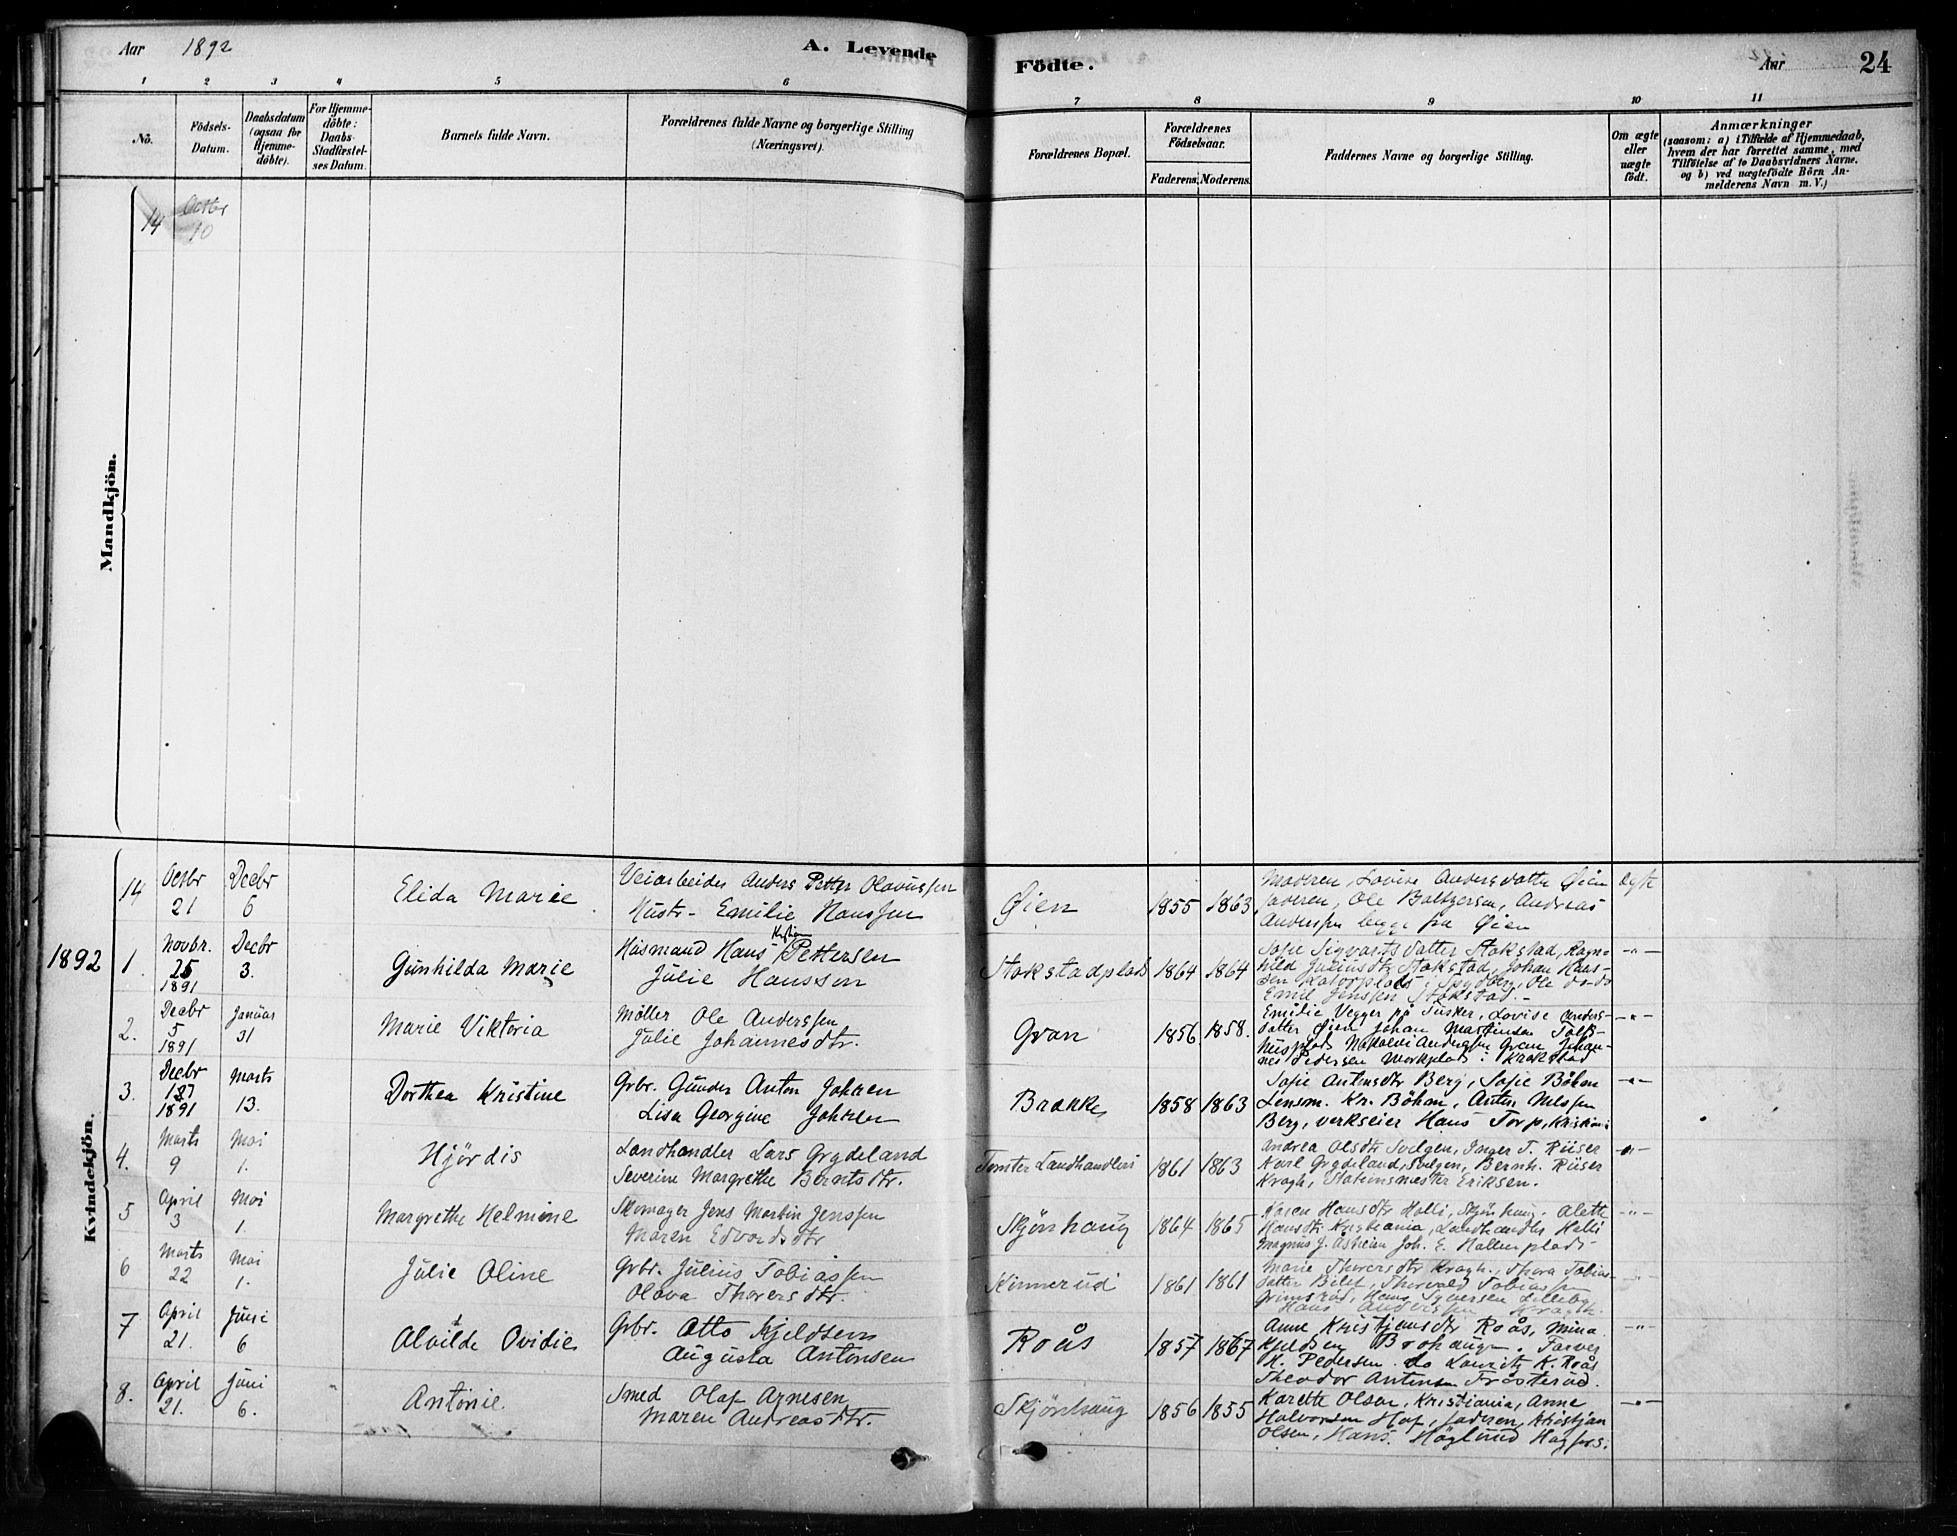 Aar 1892
A. Levende
Födte.
Aar
24
1 2 3 4 5 6 7 8 9 10 11
No.
Födsels-
Datum.
Daabsdatum
(ogsaa for
Hjemme-
döbte).
For Hjemme-
döbte:
Daabs-
Stadfæstel-
ses Datum.
Barnets fulde Navn.
Forældrenes fulde Navne og borgerlige Stilling
(Næringsvei).
Forældrenes Bopæl.
Forældrenes
Födselsaar.
Faderens. Moderens.
Faddernes Navne og borgerlige Stilling.
Om ægte
eller
uægte
födt.
Anmærkninger
(saasom: a) i Tilfælde af Hjemmedaab,
hvem der har forrettet samme, med
Tilföielse af to Daabsvidners Navne,
og b) ved uægtefödte Börn An-
melderens Navn m. V.)
Mandkjön.
14 Octbr
10
Kvindekjön.
14
Octbr
21
Decbr
6
Elida Marie
Veiarbeider Anders Petter Olavussen
Hustr- Emilie Hanssen
Øien
1855 1863
Moderen, Lovise Andersdatter Øien
Faderen, Ole Baltzersen, Andreas
Anderssen begge fra Øien
ægte
1892
1.
Novbr.
25
1891
Decbr
3.
Gunhilda Marie
Husmand Hans Kristian Pettersen
Julie Hansson
Stokstadplads
1864 1864
Sofie Sigvartsdatter Stokstad, Ragn-
hild Juliusdtr Stokstad, Johan Hans-
Emil Jenssen Stokstad.-
-"-
2.
Decbr
5
1891
Januar
31
Marie Viktoria
Möller Ole Anderssen
Julie Johannesdtr.
Gran
1856 1858.
Emilie Vegger på Tusker, Lovise Anders-
datter Øien Johan Martinsen
nes Pedersen i Krakstad
-"-
3.
Decbr
127
1891
Marts
13.
Dorthea Kristine
Grbr. Gunder Anton Johren
Lisa Georgine Johren
Brække
1858 1863
Sofie Antonsdtr Berg, Sofie Böhon
Lensm. Kr. Böhon, Anton Nilssen
Berg, verkseier Hans Torp, Kristian:
-"-
4.
Marts
9
Mai
1.
Hjördis
Landhandler Lars Grydeland
Severine Margrethe Berntsdtr.
Tomter Landhandleri
1861 1863
Andrea Olsdtr Solgen, Inger T. Riiser
Karl Grydeland, Solgen, Bernh. Riiser
Kragh, Stationsmester Eriksen.
-"-
5
April
3
Mai
1.
Margrethe Helmine
Skomager Jens Martin Jenssen
Maren Edvardsdtr
Skjönhaug
1864 1865
Karen Hansdtr Holli, Skjönhaug. Alette
Hansdtr Kristiania, Landhandler Holli
Magnus J. Askeim Joh. E. Hallenplads
-"-
6
Marts
22
Mai
1.
Julie Oline
Grbr. Julius Tobiassen
Olava Thorersdtr.
Kinnerud
1861 1861
Marie Thorersdtr Kragh. Thora Tobias-
datter Bilet, Thorvald Tobiassen
Grimsrud, Hans Syversen Lilleby
Hans Anderssen Kragh.
-"-
7
April
21.
Juni
6
Alvilde Ovidie
Grbr. Otto Kjeldsen
Augusta Antonsen
Roås
1857 1867
Anne Kristjansdtr Roås, Mina
Kjeldsen Brohaug. Farver
K. Pedersen. do Lauritz K. Roås
Theodor Antonsen Frösterud.
-"-
8.
April
21.
Juni
6.
Antonie.
Smed Olaf Arnesen
Maren Andreasdtr.
Skjönhaug
1856 1855
Karethe Olsen, Kristiania, Anne
Halvorsen Hof, Faderen, Kristjan
Olsen, Hans Höglund Hagfors.
-"-